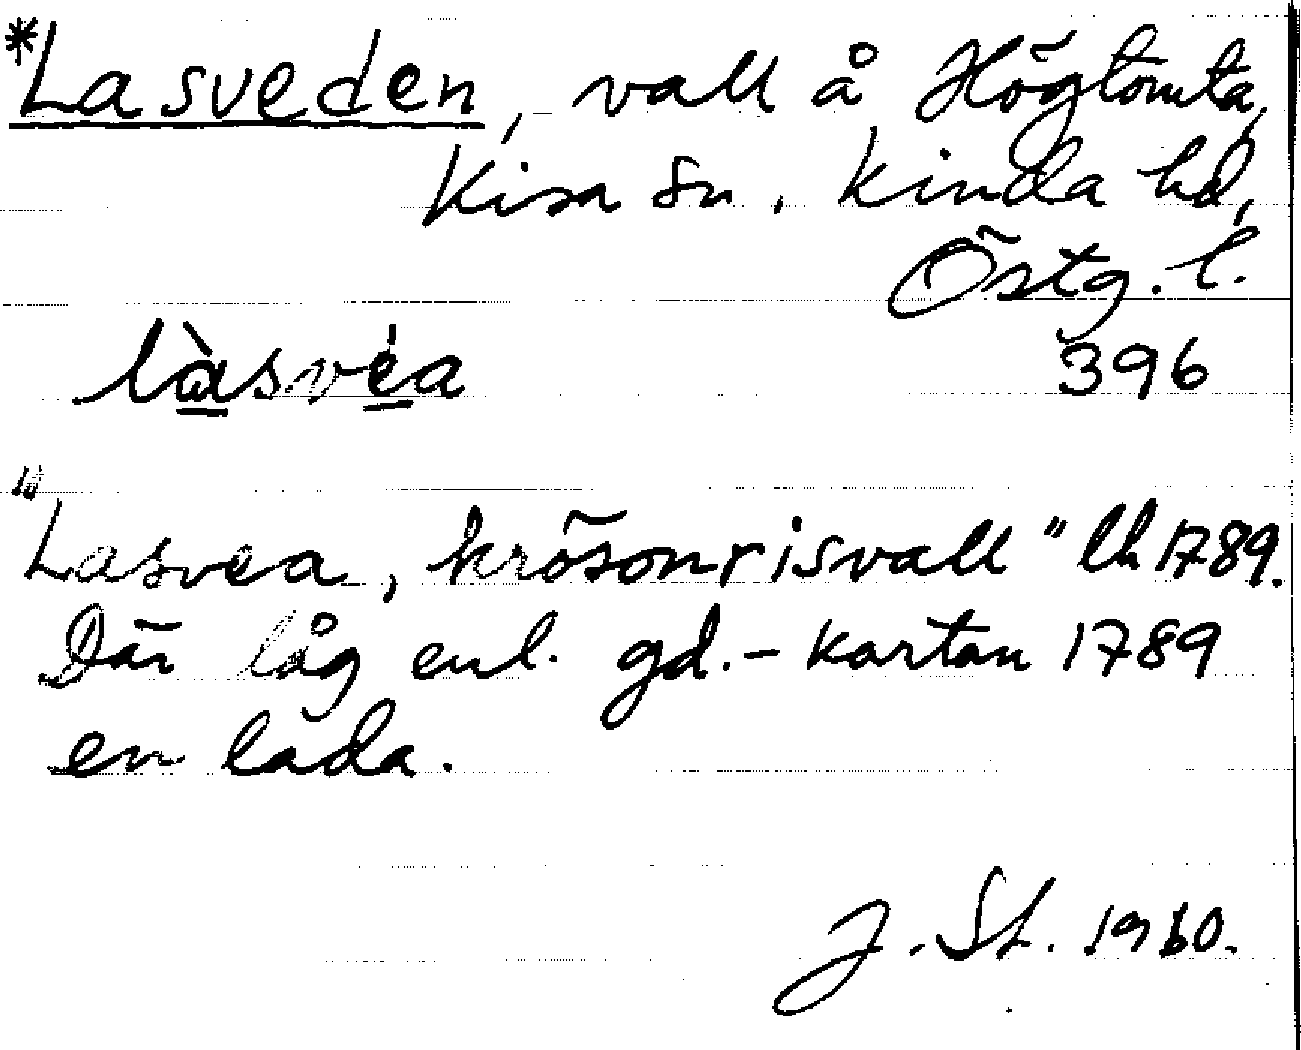 *Lasveden, vall å Högtomta,
Kisa sn, Kinda hd,
Östg. l.
làsvéa 396
"Lasvea, krösonrisvall" lh 1789.
Där låg enl. gd.-kartan 1789
en lada.
J. St. 1960.